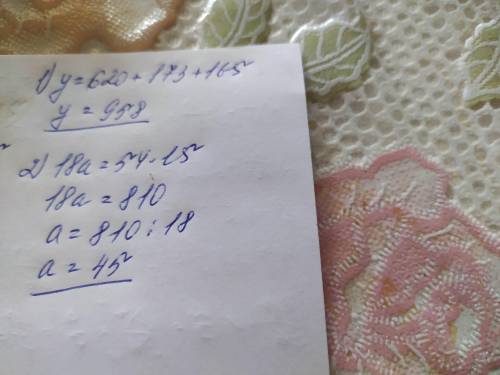 1) y = 620 + 173 + 165
y = 958
2) 18a = 54 · 15
18a = 810
a = 810 : 18
a = 45